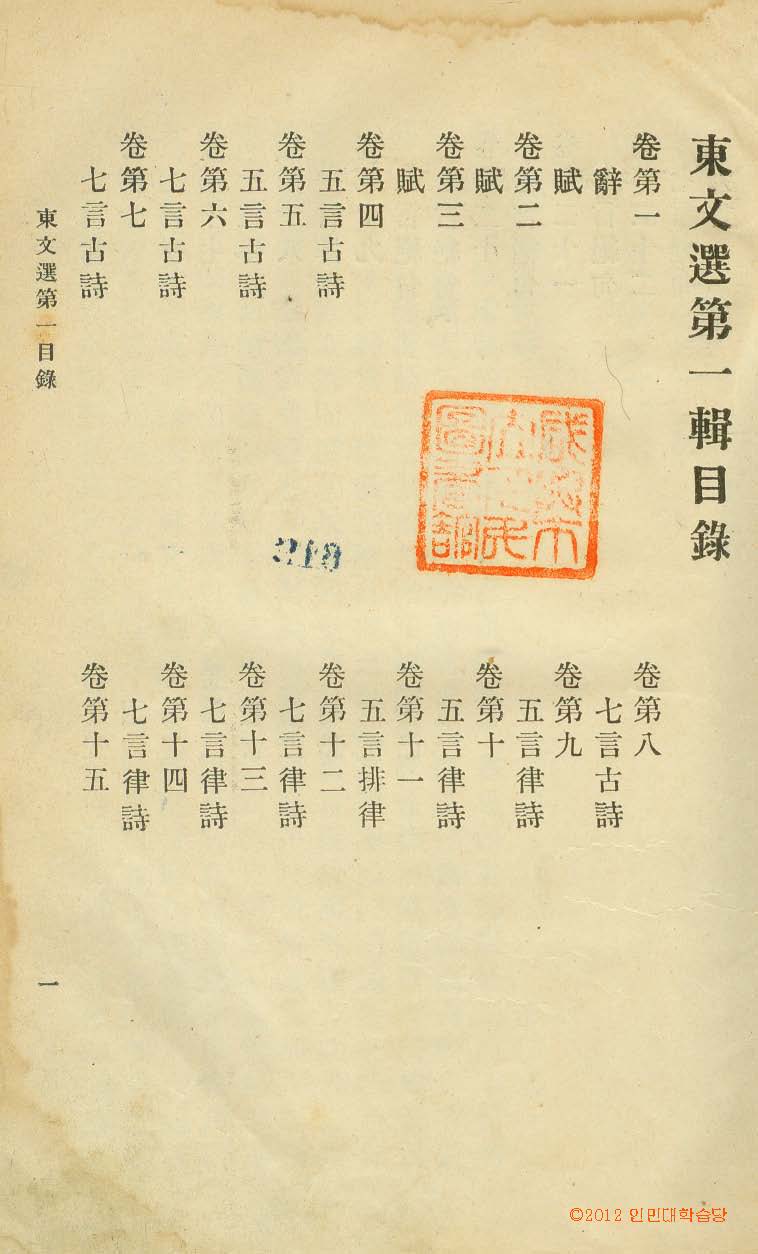 東文選第一輯目錄
卷第一
辭
賦
卷第二
賦
卷第三
賦
卷第四
五言古詩
卷第五
五言古詩
卷第六
七言古詩
卷第七
七言古詩
卷第八
七言古詩
卷第九
五言律詩
卷第十
五言律詩
卷第十一
五言排律
卷第十二
七言律詩
卷第十三
七言律詩
卷第十四
七言律詩
卷第十五
東文選第一目錄
一
©2012 인민대학습당